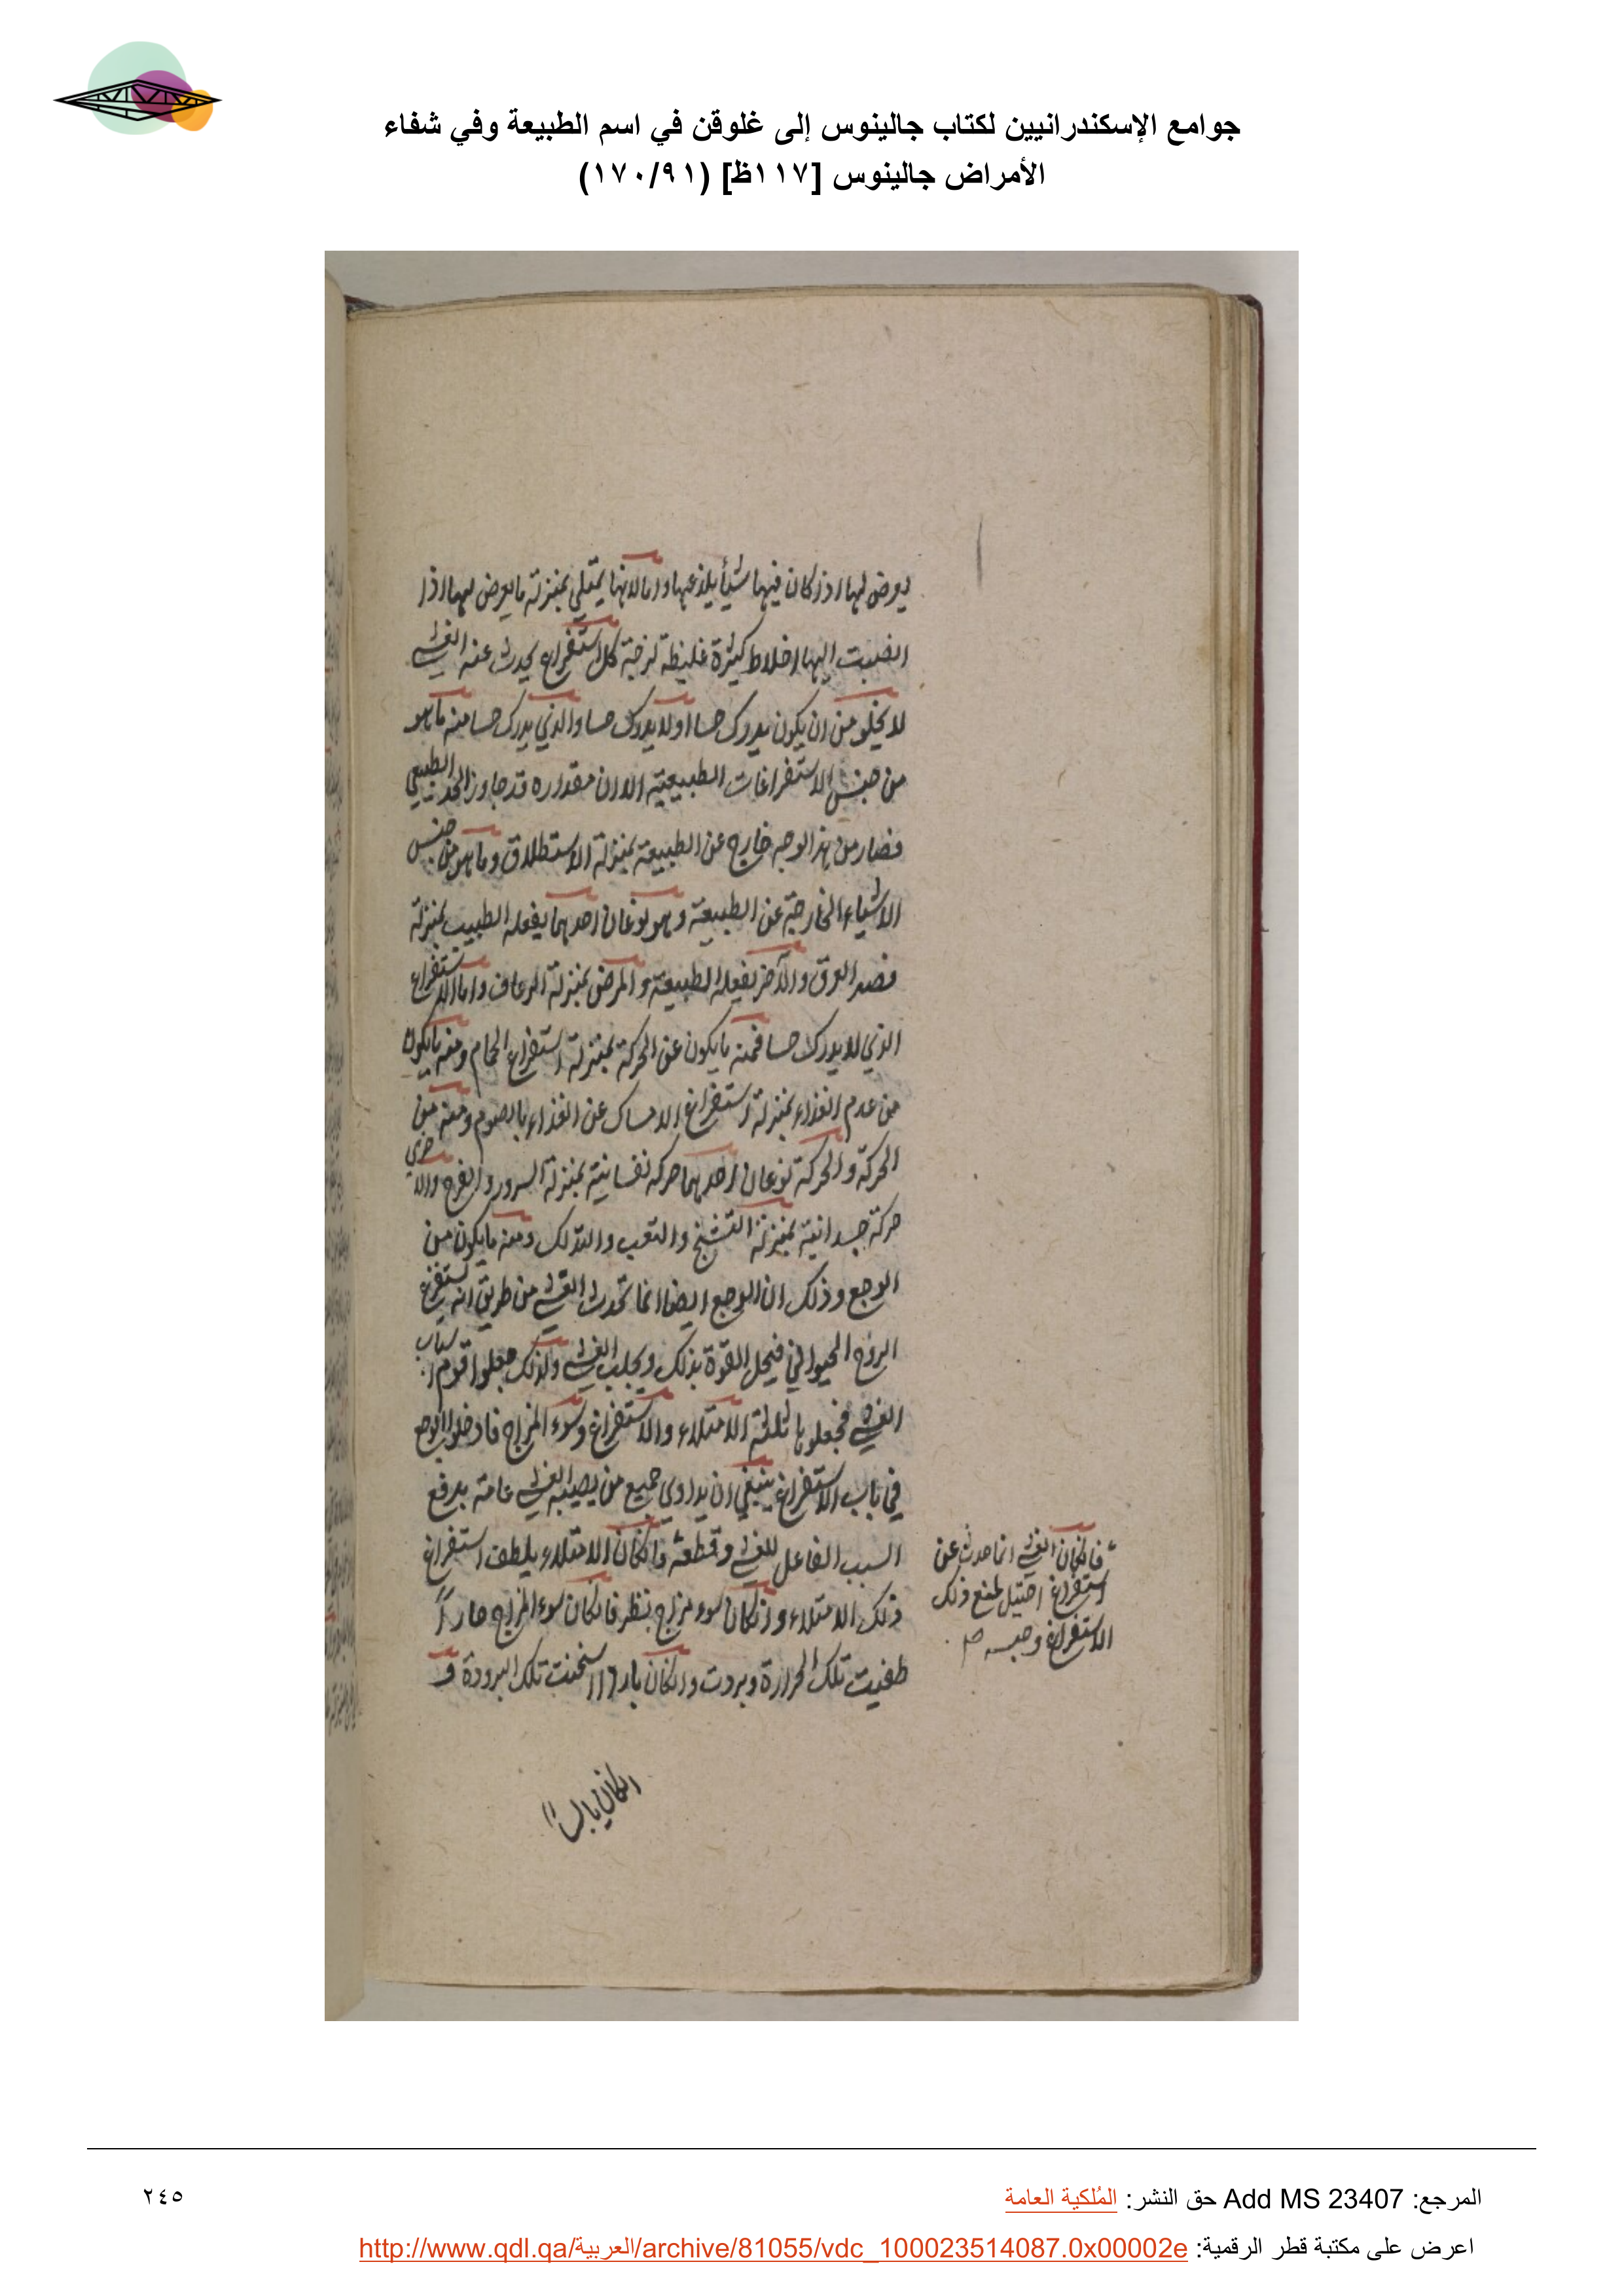 جوامع الإسكندرانيين لكتاب جالينوس إلى غلوقن في اسم الطبيعة وفي شفاء
الأمراض جالينوس [١١٧ظ] (١٧٠/٩١)
يعرض لها اذا كان فيها شيأ يلذعها واما لانها يمتلي بمنزلة ما يعرض لها اذا
انصبت اليها اخلاط كثيرة غليظة لزجة كل استفراغ يحدث عنه الغشي
لا يخلو من ان يكون يدرك حسا او لا يدرك حسا والذي يدرك حسا منه ما هو
من جنس الاستفراغات الطبيعية الا ان مقداره قد جاوز الحد الطبيعي
فصار من هذا الوجه خارج عن الطبيعة بمنزلة الاستطلاق وما هو من جنس
الاشياء الخارجة عن الطبيعة وهو نوعان احدهما يفعله الطبيب بمنزلة
فصد العرق والآخر يفعله الطبيعة والمرض بمنزلة الرعاف واما الاستفراغ
الذي لا يدرك حسا فمنه ما يكون عن الحركة بمنزلة استفراغ الحمام ومنه ما يكون
من عدم الغذاء بمنزلة استفراغ الامساك عن الغذاء بالصوم ومنه من
الحركة والحركة نوعان احدهما حركه نفسانية بمنزلة السرور والفرح والاخرى
حركة جسدانية بمنزلة التشنج والتعب والتدلك ومنه ما يكون من
الوجع وذلك ان الوجع ايضا انما تحدث الغشي من طريق انه يستفرغ
الروح الحيواني فيحل القوة بذلك ويجلب الغشي ولذلك جعلوا قوم اسباب
الغشي فجعلوها ثلثة الامتلاء والاستفراغ وسوء المزاج فادخلوا الوجع
في باب الاستفراغ ينبغي ان يداوي جميع من يصيبه الغشي عامة بدفع
السبب الفاعل للغشي وقطعه وان كان الامتلاء يلطف استفراغ
ذلك الامتلاء وان كان سوء مزاج ينظر فان كان سوء المزاج حاراً
طفيت تلك الحرارة وبردت وان كان باردا اسخنت تلك البرودة و
فان كان الغشي انما حدث عن
استفراغ احتيل لمنع ذلك
الاستفراغ وحبسه
المرجع: Add MS 23407 حق النشر: المُلكية العامة
٢٤٥
اعرض على مكتبة قطر الرقمية: http://www.qdl.qa/العربية/archive/81055/vdc_100023514087.0x00002e